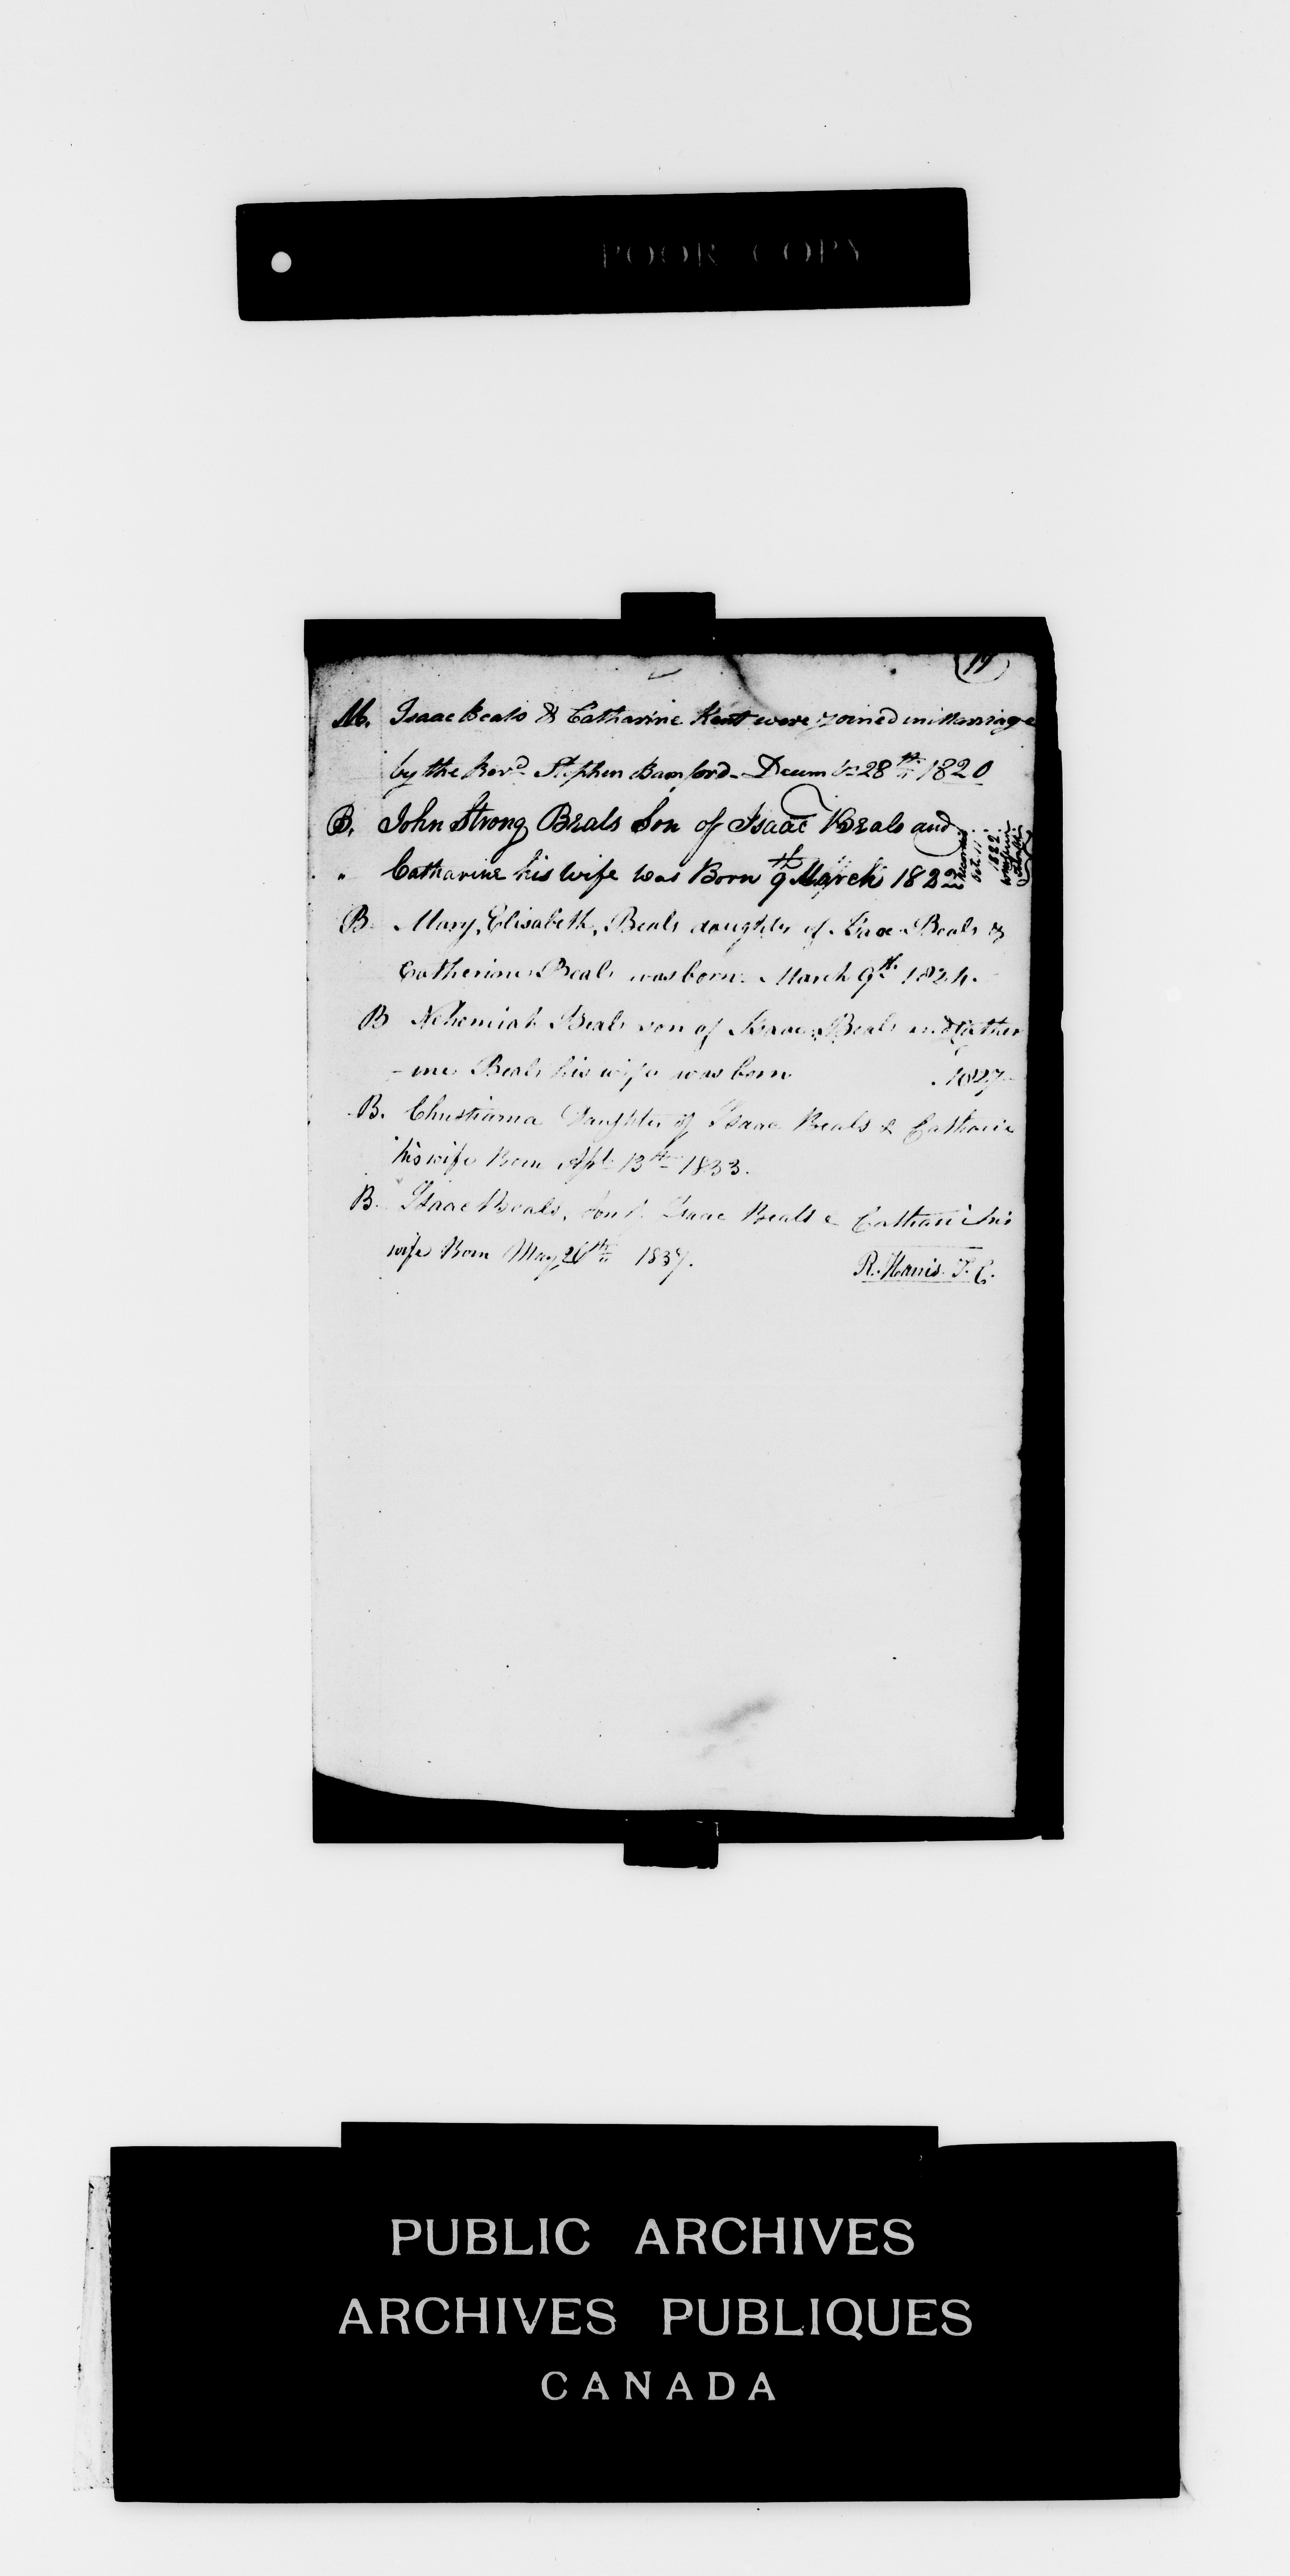 POOR COPY
17
M. Isaac Beals & Catharine Kent were joined in Marriage
by the Revd. Stephen Bamford. Decembr 28th 1820
B. John Strong Beals Son of Isaac Beals and
" Catharine his wife was Born 9th March 1822
Oct. 11
1822
B. Mary, Elisabeth, Beals daughter of Isaac Beals &
Catherine Beals was born. March 9th 1824.
B Nehemiah Beals son of Isaac Beals and Cather
-ine Beals his wife was born 1827
B. Christianna Daughter of Isaac Beals & Catharie
his wife Born Apl 13th 1833.
B. Isaac Beals, Son of Isaac Beals & Catharie his
wife Born May 26th 1837.
R. Harris T. C.
PUBLIC ARCHIVES
ARCHIVES PUBLIQUES
CANADA